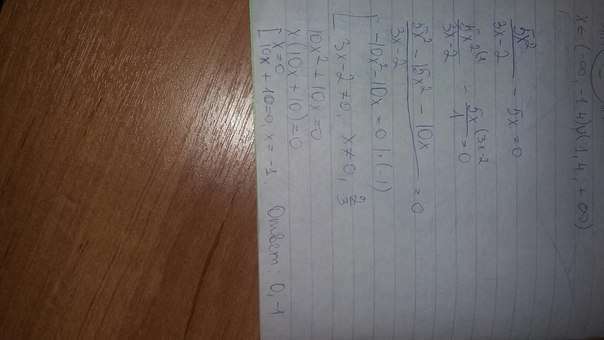 x = (-∞, -1,4)∪(1,4, +∞)
5x²/(3x-2) - 5x = 0
5x²/(3x-2) - 5x/1 (3x-2) = 0
(5x² - 15x² - 10x)/(3x-2) = 0
[-10x² - 10x = 0 |·(-1)
3x-2≠0, x≠0, 2/3
10x² + 10x = 0
x(10x + 10) = 0
[x = 0
10x + 10 = 0, x = -1 Ответ: 0, -1